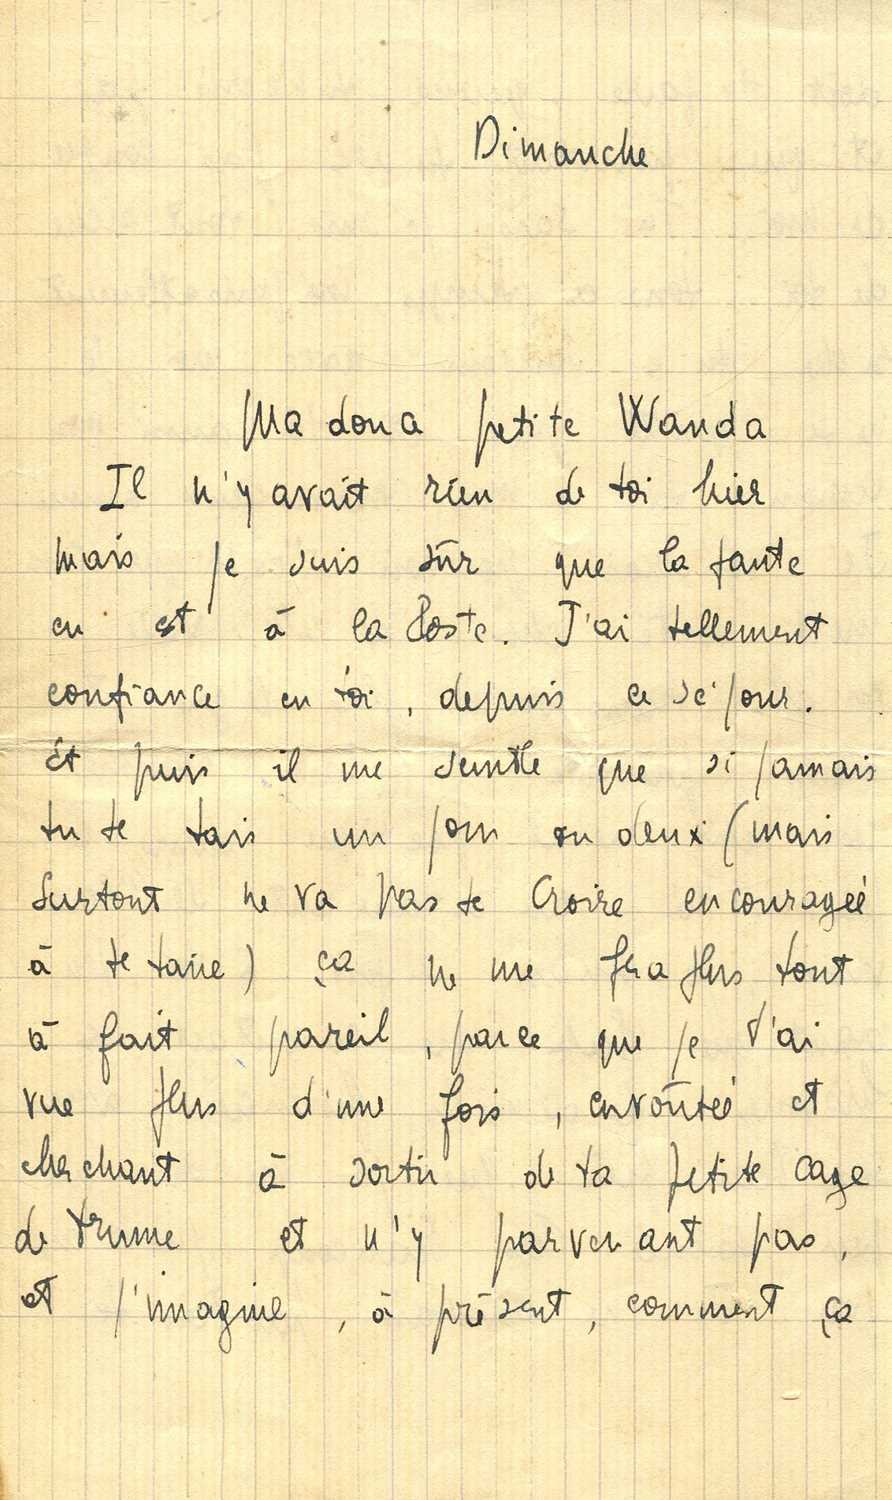 Dimanche
Ma dona petite Wanda
Il n'y avait rien de toi hier
mais je suis sûr que la faute
en est à la Poste. J'ai tellement
confiance en toi, depuis ce séjour.
Et puis il me semble que si jamais
tu te tais un jour ou deux (mais
surtout ne va pas te croire encouragée
à te taire) ça ne me fera plus tout
à fait pareil, parce que je t'ai
vue plus d'une fois, envoûtée et
cherchant à sortir de ta petite cage
de brume et n'y parvenant pas,
et j'imagine, à présent, comment ça